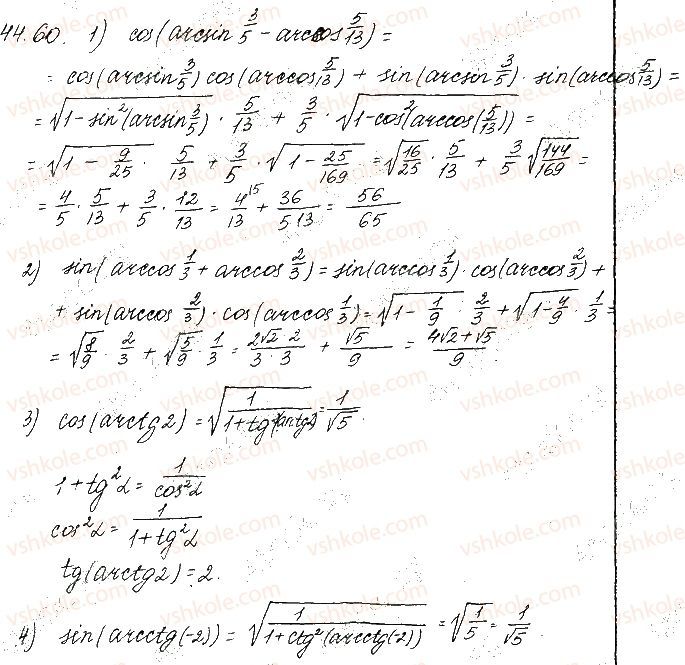 44.60. 1) cos(arcsin 3/5 - arccos 5/13) =
= cos(arcsin 3/5) cos(arccos 5/13) + sin(arcsin 3/5) · sin(arccos 5/13) =
= √(1-sin²(arcsin 3/5)) · 5/13 + 3/5 · √(1-cos²(arccos(5/13))) =
= √(1 - 9/25) · 5/13 + 3/5 · √(1 - 25/169) = √(16/25) · 5/13 + 3/5 √(144/169) =
= 4/5 · 5/13 + 3/5 · 12/13 = 4/13 + 36/(5·13) = 56/65
2) sin(arccos 1/3 + arccos 2/3) = sin(arccos 1/3) · cos(arccos 2/3) +
+ sin(arccos 2/3) · cos(arccos 1/3) = √(1 - 1/9) · 2/3 + √(1 - 4/9) · 1/3 =
= √(8/9) · 2/3 + √(5/9) · 1/3 = (2√2 · 2)/(3 · 3) + √5/9 = (4√2 + √5)/9.
3) cos(arctg2) = √(1/(1+tg²(arctg2))) = 1/√5.
1 + tg²α = 1/cos²α
cos²α = 1/(1+tg²α)
tg(arctg2) = 2.
4) sin(arcctg(-2)) = √(1/(1+ctg²(arcctg(-2)))) = √(1/5) = 1/√5.